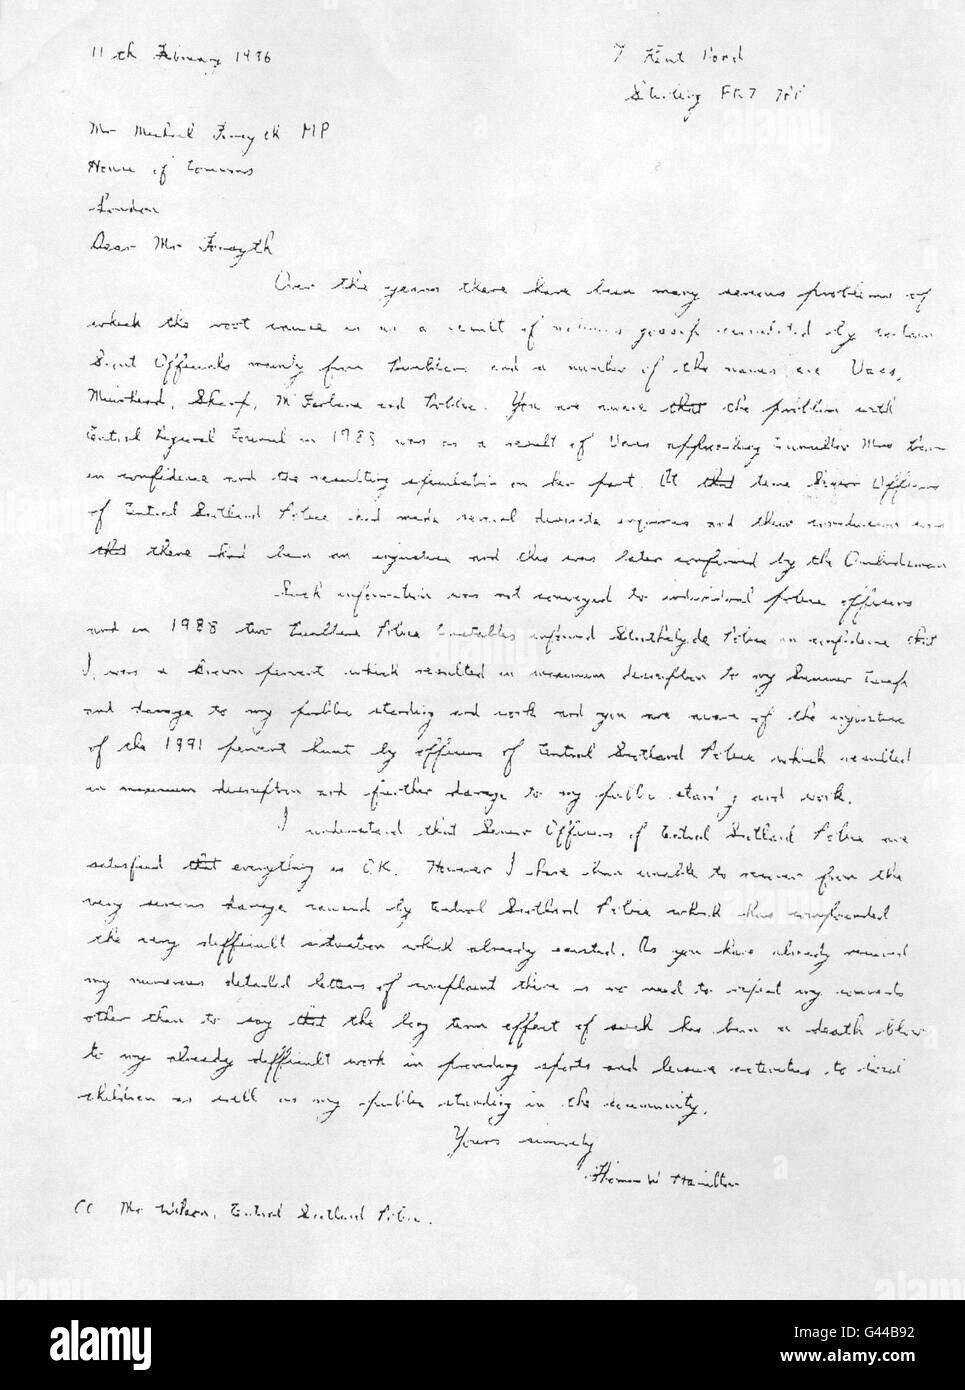 11th February 1996
7 Kent Road
Stirling FK7
Mr Michael Forsyth MP
House of Commons
London
Dear Mr Forsyth
Over the years there have been many serious problems of
which the root cause is as a result of malicious gossip by certain
Scout Officials mainly from Dunblane and a number of the names are
Muirhead, Sharp, McFarlane and You are aware that the problem with
Central Regional Council in 1983 was as a result of approaching Councillor Mrs
in confidence and the resulting speculation on her part. At that time Senior Officers
of Central Scotland Police had made several discrete enquiries and their conclusion was
that there had been an and this was later confirmed by the Ombudsman
Such information was not conveyed to individual police officers
and in 1988 two Dunblane Police Constables informed Strathclyde Police in confidence that
I was a Brown pervert which resulted in maximum disruption to my Summer Camp
and damage to my public standing and work and you are aware of the
of the 1991 pervert hunt by officers of Central Scotland Police which resulted
in maximum disruption and further damage to my public standing and work.
I understand that Senior Officers of Central Scotland Police are
satisfied that everything is O.K. However I have been unable to recover from the
very serious damage caused by Central Scotland Police which has compounded
the very difficult situation which already existed. As you have already received
my numerous detailed letters of complaint there is no need to repeat my concerns
other than to say that the long term effect of such has been a death blow
to my already difficult work in providing sports and leisure activities to local
children as well as my public standing in the community.
Yours sincerely
Thomas W Hamilton
CC Mr Wilson, Central Scotland Police.
alamy
G44B92
www.alamy.com